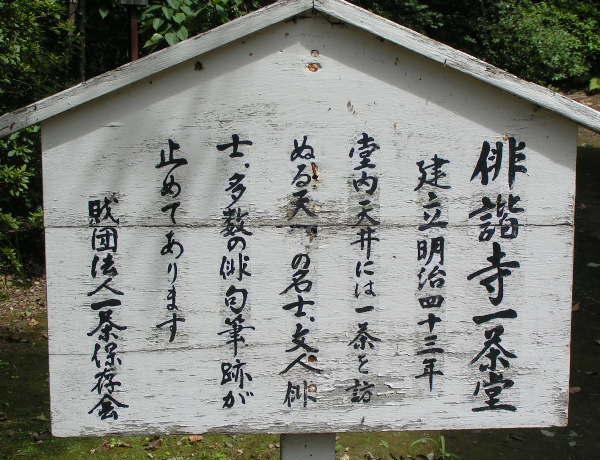 俳諧寺一茶堂
建立明治四十三年
堂内天井には一茶を訪
ぬる天下の名士、文人俳
士、多数の俳句筆跡が
止めてあります
財団法人一茶保存会